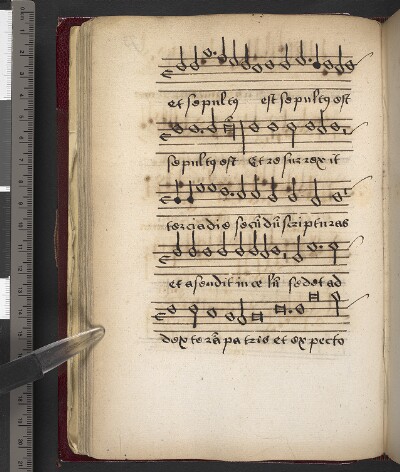 et sepultꝰ est sepultꝰ est
sepultꝰ est Et resurrexit
tercia die secūdū scripturas
et asendit in celū sedet ad
dexterā patris et expecto